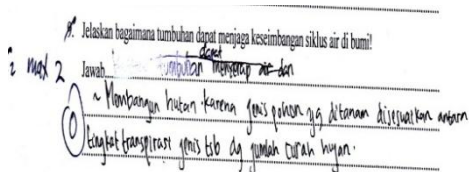 8. Jelaskan bagaimana tumbuhan dapat menjaga keseimbangan siklus air di bumi!
dapat
max 2 Jawab tumbuhan menyerap air dan
~ Membangun hutan karena jenis pohon yg ditanam disesuaikan antara
0 tingkat transpirasi jenis tsb dg jumlah curah hujan.